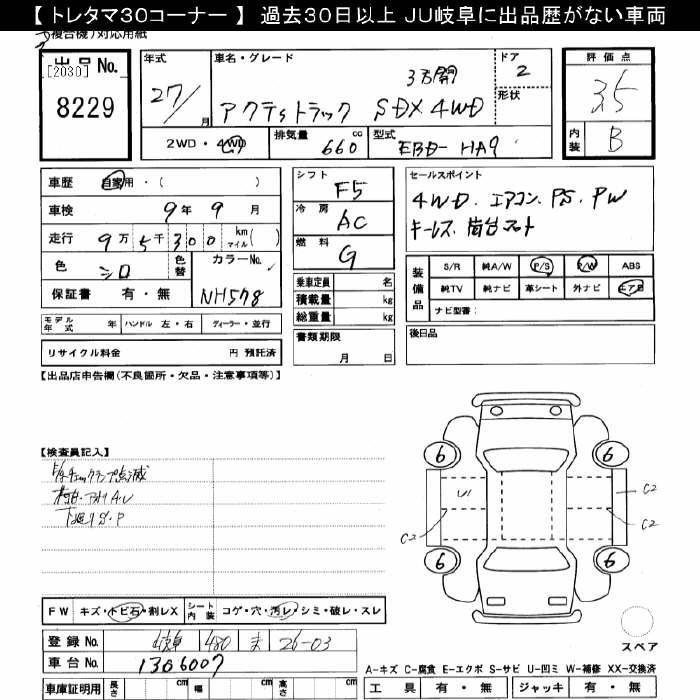 【 トレタマ30コーナー 】 過去30日以上 JU岐阜に出品歴がない車両
複合機)対応用紙
出品 No.
[2030]
8229
年式
27/
月
車名・グレード
3方開
アクティトラック SDX 4WD
ドア
2
形状
評価点
3.5
内装
B
2WD・4WD
排気量
660 cc
型式
EBD-HA9
車歴 自家用・( )
車検 9年 9月
走行 9万 5千 300 km マイル ( )
色 シロ
色替
カラーNo.
NH578
保証書 有・無
モデル年式 年 ハンドル 左・右 ディーラー・並行
リサイクル料金 円 預託済
シフト
F5
冷房
AC
燃料
G
乗車定員 名
積載量 kg
総重量 kg
書類期限
月 日
セールスポイント
4WD. エアコン. PS. PW
キーレス. 荷台マット
装備品
S/R 純A/W P/S P/W ABS
純TV 純ナビ 革シート 外ナビ エアB
ナビ型番:
後日品
【出品店申告欄(不良箇所・欠品・注意事項等)】
【検査員記入】
チェックランプ点滅
荷台・アオリA.U
下廻りS・P
6
6
6
6
U1
C2
C2
C2
C2
FW キズ・トビ石・割レX
シート内装 コゲ・穴・汚レ・シミ・破レ・スレ
登録 No. 岐阜 480 ま 26-03
車台 No. 1306007
車庫証明用 長さ cm 幅 cm 高さ cm
スペア
A-キズ C-腐食 E-エクボ S-サビ U-凹ミ W-補修 XX-交換済
工具 有・無 ジャッキ 有・無